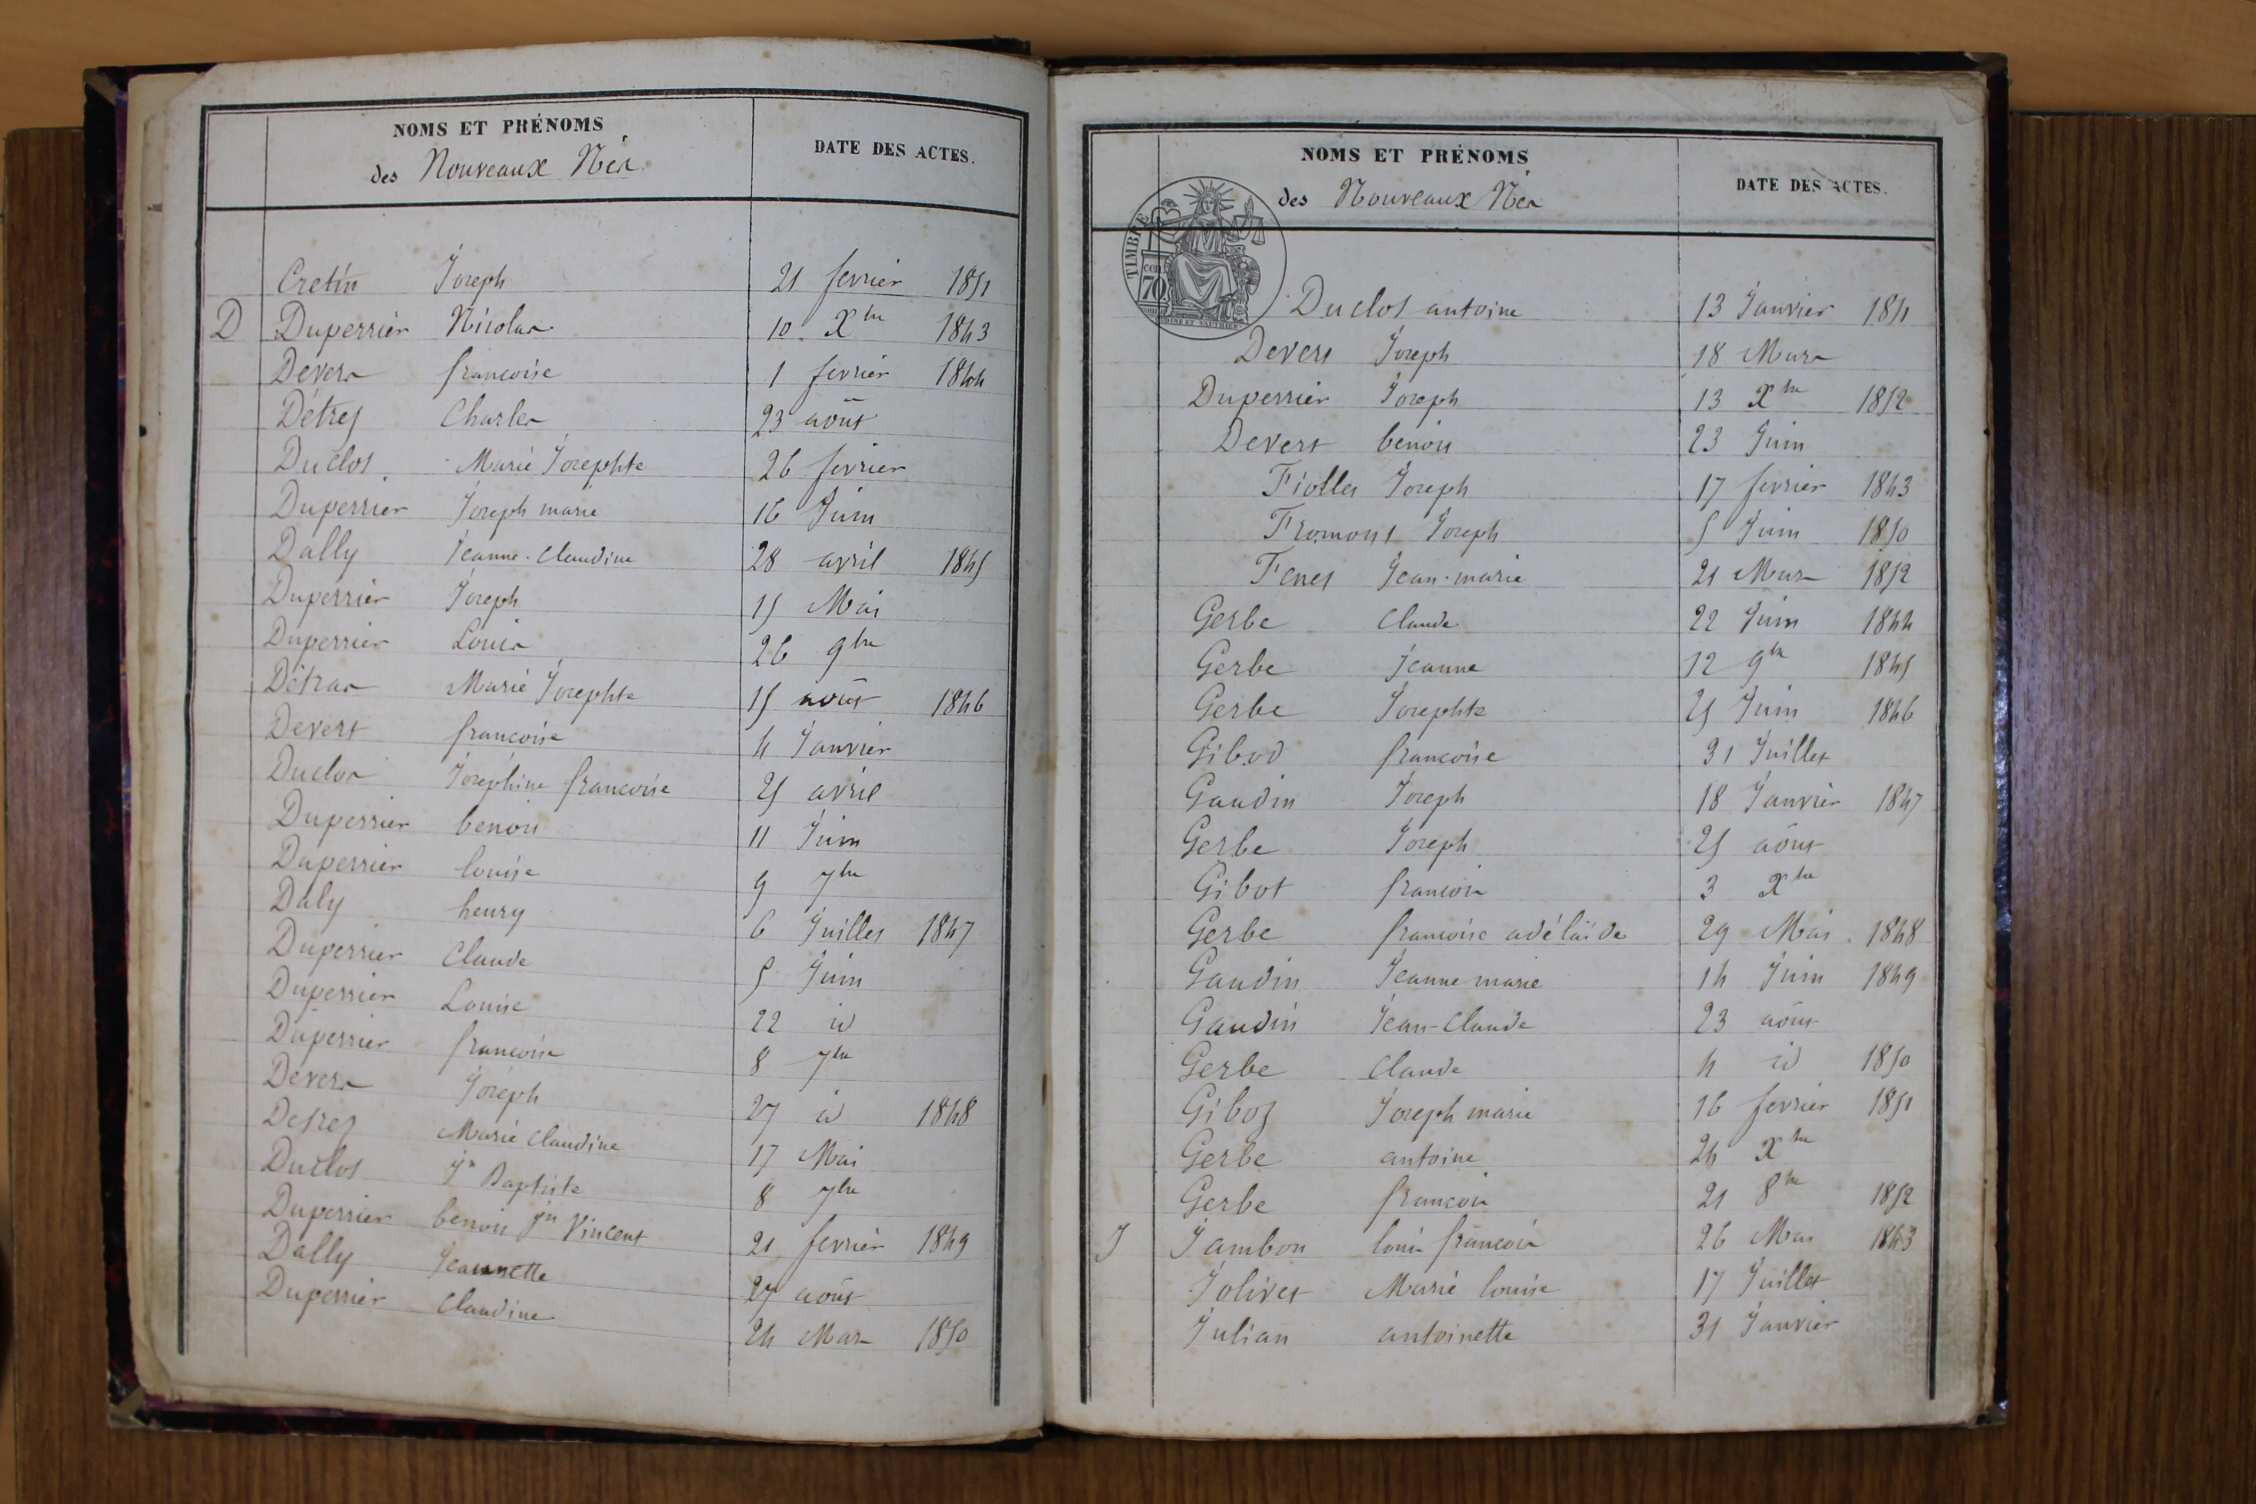 NOMS ET PRÉNOMS
des Nouveaux Nés
DATE DES ACTES.
Cretin Joseph 21 fevrier 1851
D Duperrier Nicolas 10 Xbre 1843
Devers francoise 1 fevrier 1844
Détrej Charles 23 août
Duclos Marie Josephte 26 fevrier
Duperrier Joseph marie 16 Juin
Dally Jeanne-Claudine 28 avril 1845
Duperrier Joseph 15 Mai
Duperrier Louis 26 9bre
Détras Marie Josephte 15 août 1846
Devert francoise 4 Janvier
Duclos Joséphine francoise 25 avril
Duperrier benoit 11 Juin
Duperrier louise 9 7bre
Daly henry 6 Juillet 1847
Duperrier Claude 5 Juin
Duperrier Louise 22 id
Duperrier francoise 8 7bre
Devers Joseph 27 id 1848
Detrej Marie Claudine 17 Mai
Duclos Jn Baptiste 8 7bre
Duperrier benoit Jn Vincent 21 fevrier 1849
Dally Jeannette 27 août
Duperrier Claudine 24 Mars 1850
NOMS ET PRÉNOMS
des Nouveaux Nés
DATE DES ACTES.
TIMBRE
70
Duclos antoine 13 Janvier 1851
Devers Joseph 18 Mars
Duperrier Joseph 13 Xbre 1852
Devert benoit 23 Juin
Fiolles Joseph 17 fevrier 1843
Fromont Joseph 5 Juin 1850
Fenet Jean-marie 21 Mars 1852
Gerbe Claude 22 Juin 1844
Gerbe Jeanne 12 9bre 1845
Gerbe Josephte 25 Juin 1846
Gibod francoise 31 Juillet
Gaudin Joseph 18 Janvier 1847
Gerbe Joseph 25 août
Gibot francois 3 Xbre
Gerbe francoise adélaïde 29 Mai 1848
Gaudin Jeanne marie 14 Juin 1849
Gaudin Jean-Claude 23 août
Gerbe Claude 4 id 1850
Giboz Joseph marie 16 fevrier 1851
Gerbe antoine 24 Xbre
Gerbe francois 21 8bre 1852
J Jambon louis francois 26 Mai 1843
Jolivet Marie louise 17 Juillet
Julian antoinette 31 Janvier